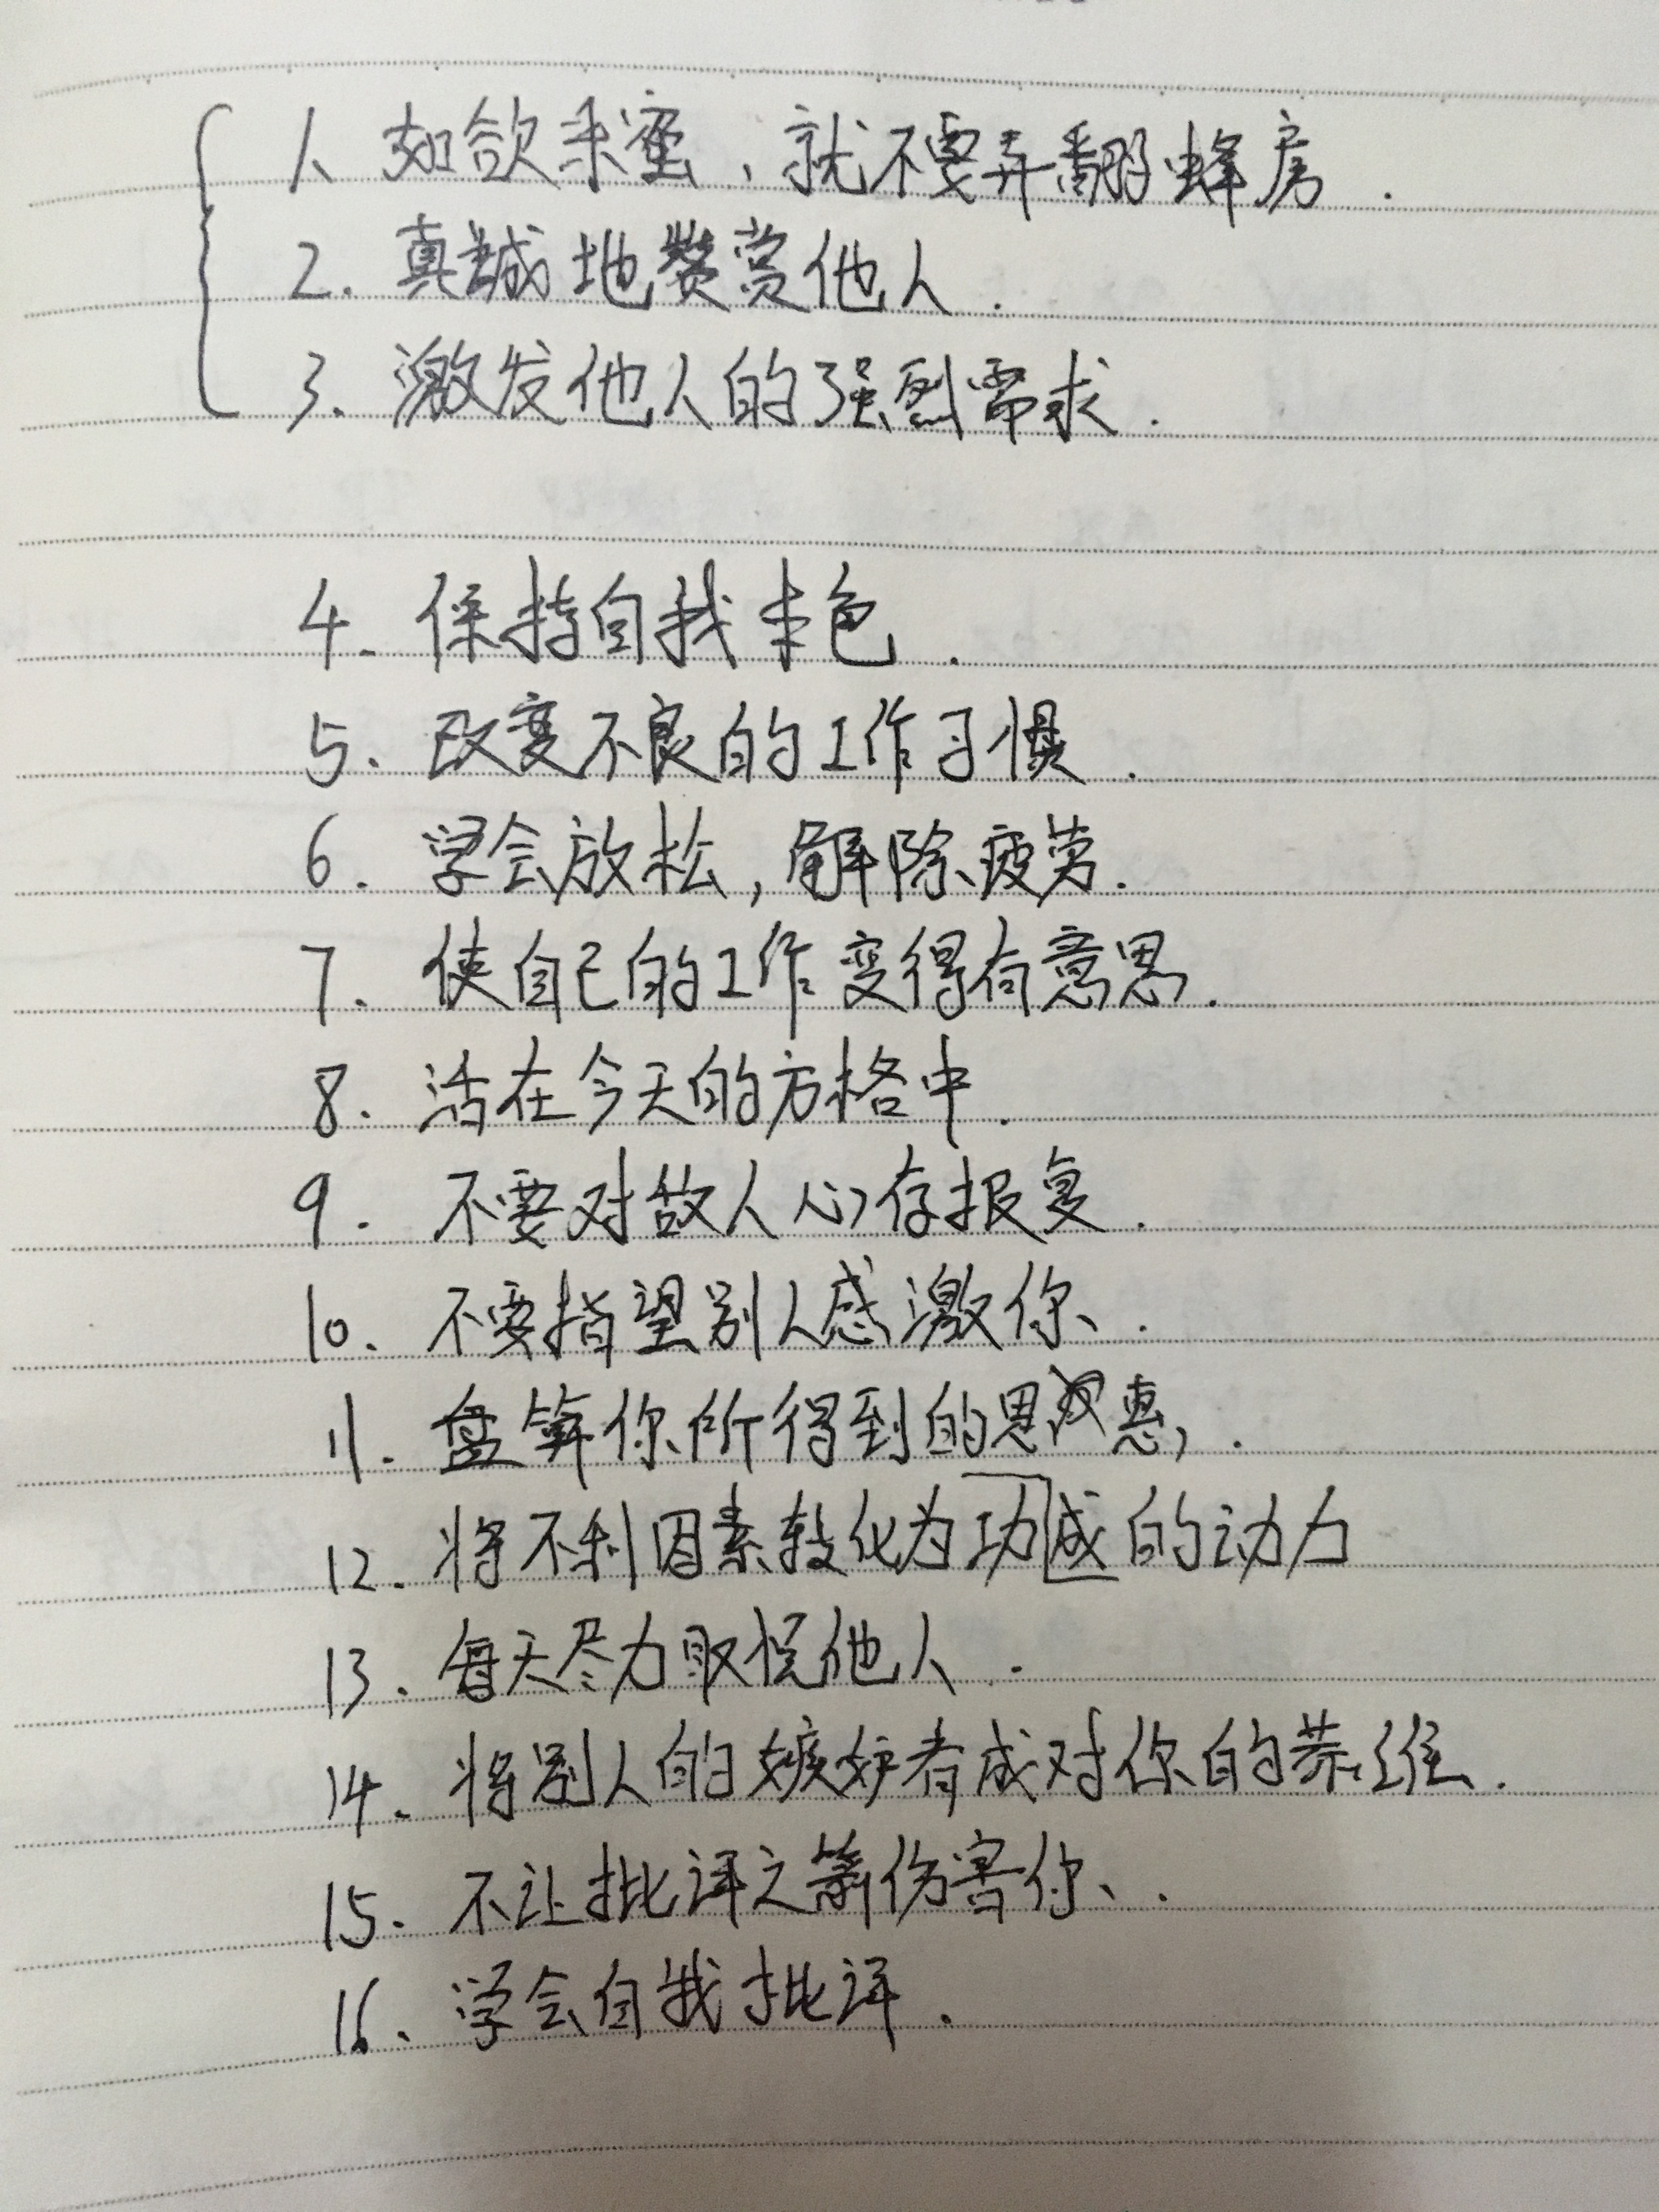 1. 如欲采蜜，就不要弄翻蜂房.
2. 真诚地赞赏他人.
3. 激发他人的强烈需求.
4. 保持自我本色.
5. 改变不良的工作习惯.
6. 学会放松，解除疲劳.
7. 使自己的工作变得有意思.
8. 活在今天的方格中.
9. 不要对敌人心存报复.
10. 不要指望别人感激你.
11. 盘算你所得到的恩惠.
12. 将不利因素转化为功成的动力
13. 每天尽力取悦他人.
14. 将别人的嫉妒看成对你的恭维.
15. 不让批评之箭伤害你.
16. 学会自我批评.